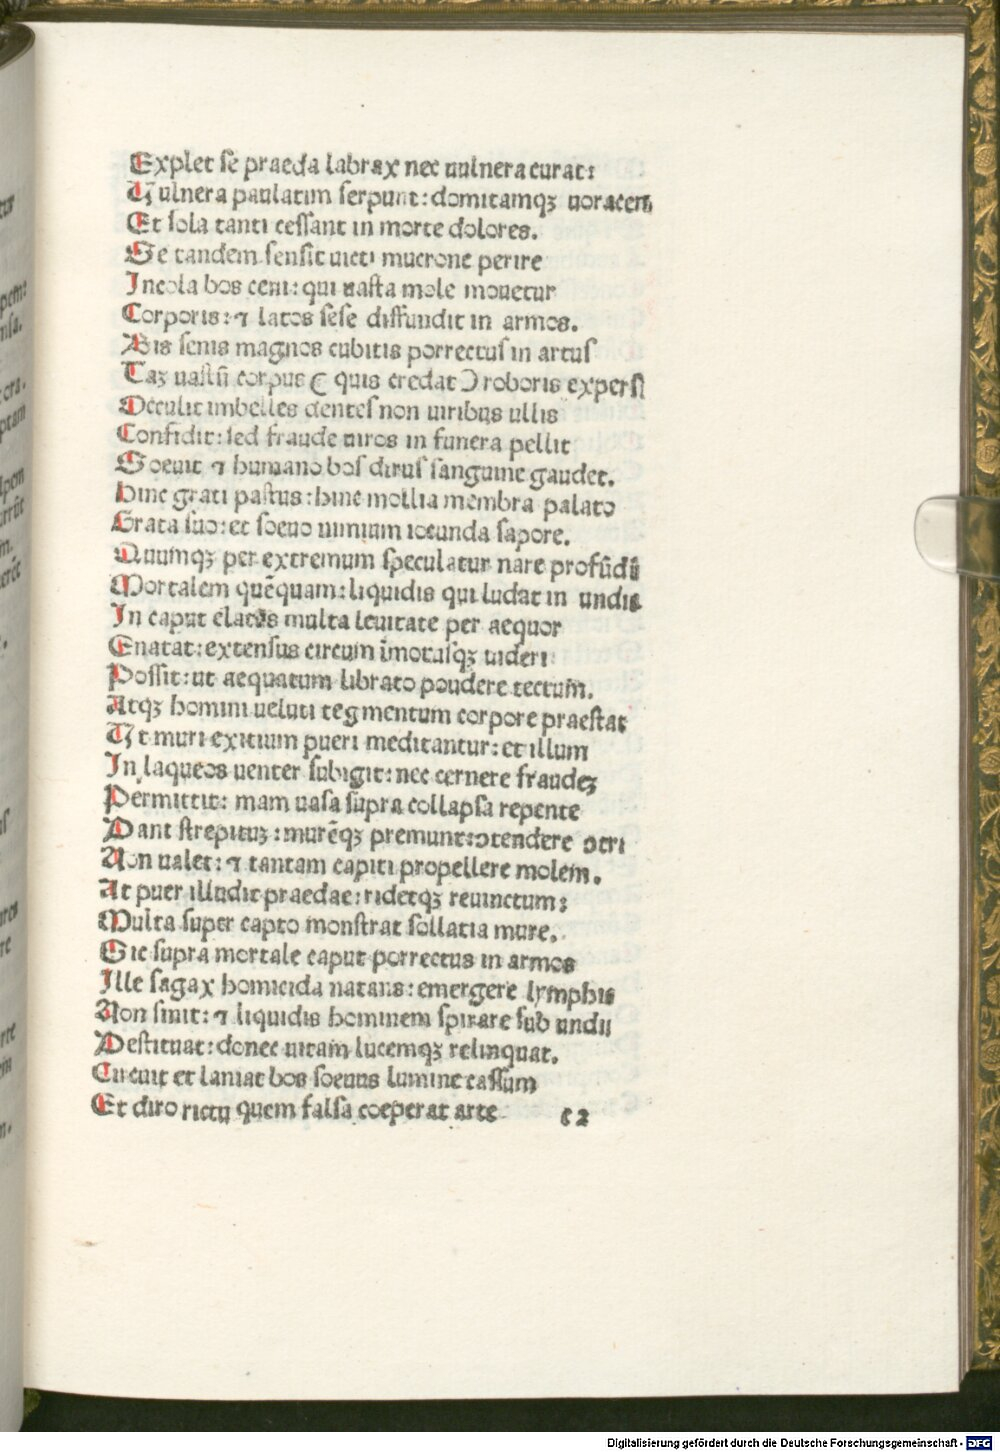 Explet se praeda labrax nec uulnera curat:
Uulnera paulatim serpunt: domitamqꝫ uoracem
Et sola tanti cessant in morte dolores.
Se tandem sensit uicti mucrone perire
Incola bos ceni: qui uasta mole mouetur
Corporis: ⁊ latos sese diffundit in armos.
Bis senis magnos cubitis porrectus in artus
Taꝫ uastū corpus ( quis credat ) roboris expers
Occulit imbelles dentes non uiribus ullis
Confidit: sed fraude uiros in funera pellit
Soeuit ⁊ humano bos dirus sanguine gaudet.
Hinc grati pastus: hinc mollia membra palato
Grata suo: et soeuo nimium iocunda sapore.
Quumqꝫ per extremum speculatur nare profūdū
Mortalem quēquam: liquidis qui ludat in undis
In caput elatus multa leuitate per aequor
Enatat: extensus circum īmotusqꝫ uideri
Possit: ut aequatum librato pondere tectum.
Atqꝫ homini ueluti tegmentum corpore praestat
Ut muri exitium pueri meditantur: et illum
In laqueos uenter subigit: nec cernere fraudeꝫ
Permittit: mam uasa supra collapsa repente
Dant strepituꝫ: murēqꝫ premunt: ↄtendere ↄtri
Non ualet: ⁊ tantam capiti propellere molem.
At puer illudit praedae: ridetqꝫ reuinctum:
Multa super capto monstrat sollatia mure.
Sic supra mortale caput porrectus in armos
Ille sagax homicida natans: emergere lymphis
Non sinit: ⁊ liquidis hominem spirare sub undis
Destituat: donec uitam lucemqꝫ relinquat.
Circuit et laniat bos soeuus lumine cassum
Et diro rictu quem falsa coeperat arte
c2
Digitalisierung gefördert durch die Deutsche Forschungsgemeinschaft - DFG